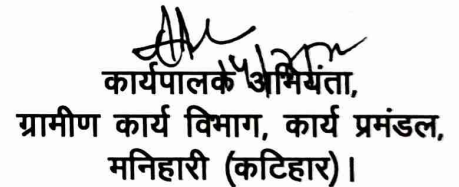 कार्यपालक अभियंता,
ग्रामीण कार्य विभाग, कार्य प्रमंडल,
मनिहारी (कटिहार)।